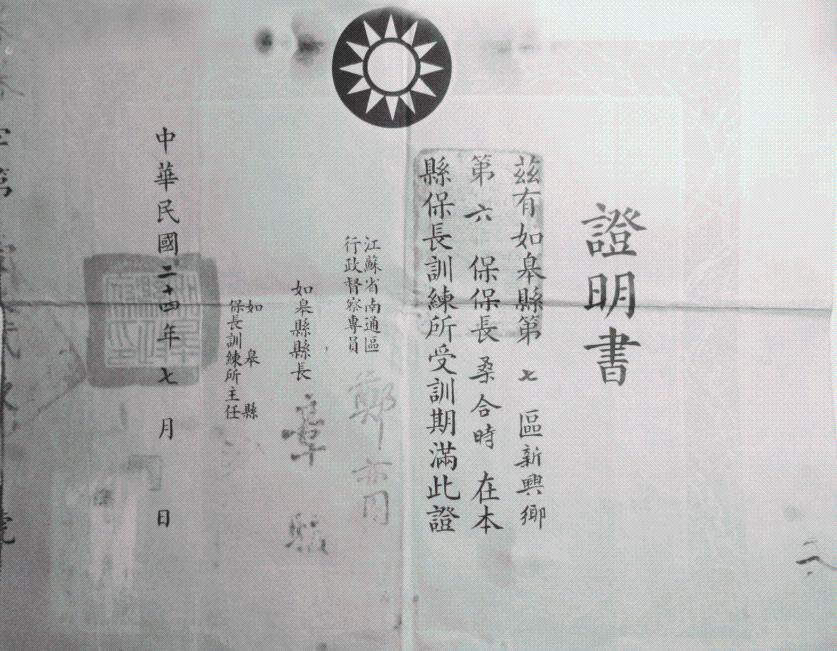 證明書
茲有如皋縣第七區新興鄉
第六保保長桑合時在本
縣保長訓練所受訓期滿此證
江蘇省南通區
行政督察專員
鄭亦同
如皋縣縣長
章
如皋縣
保長訓練所主任
中華民國二十四年七月日